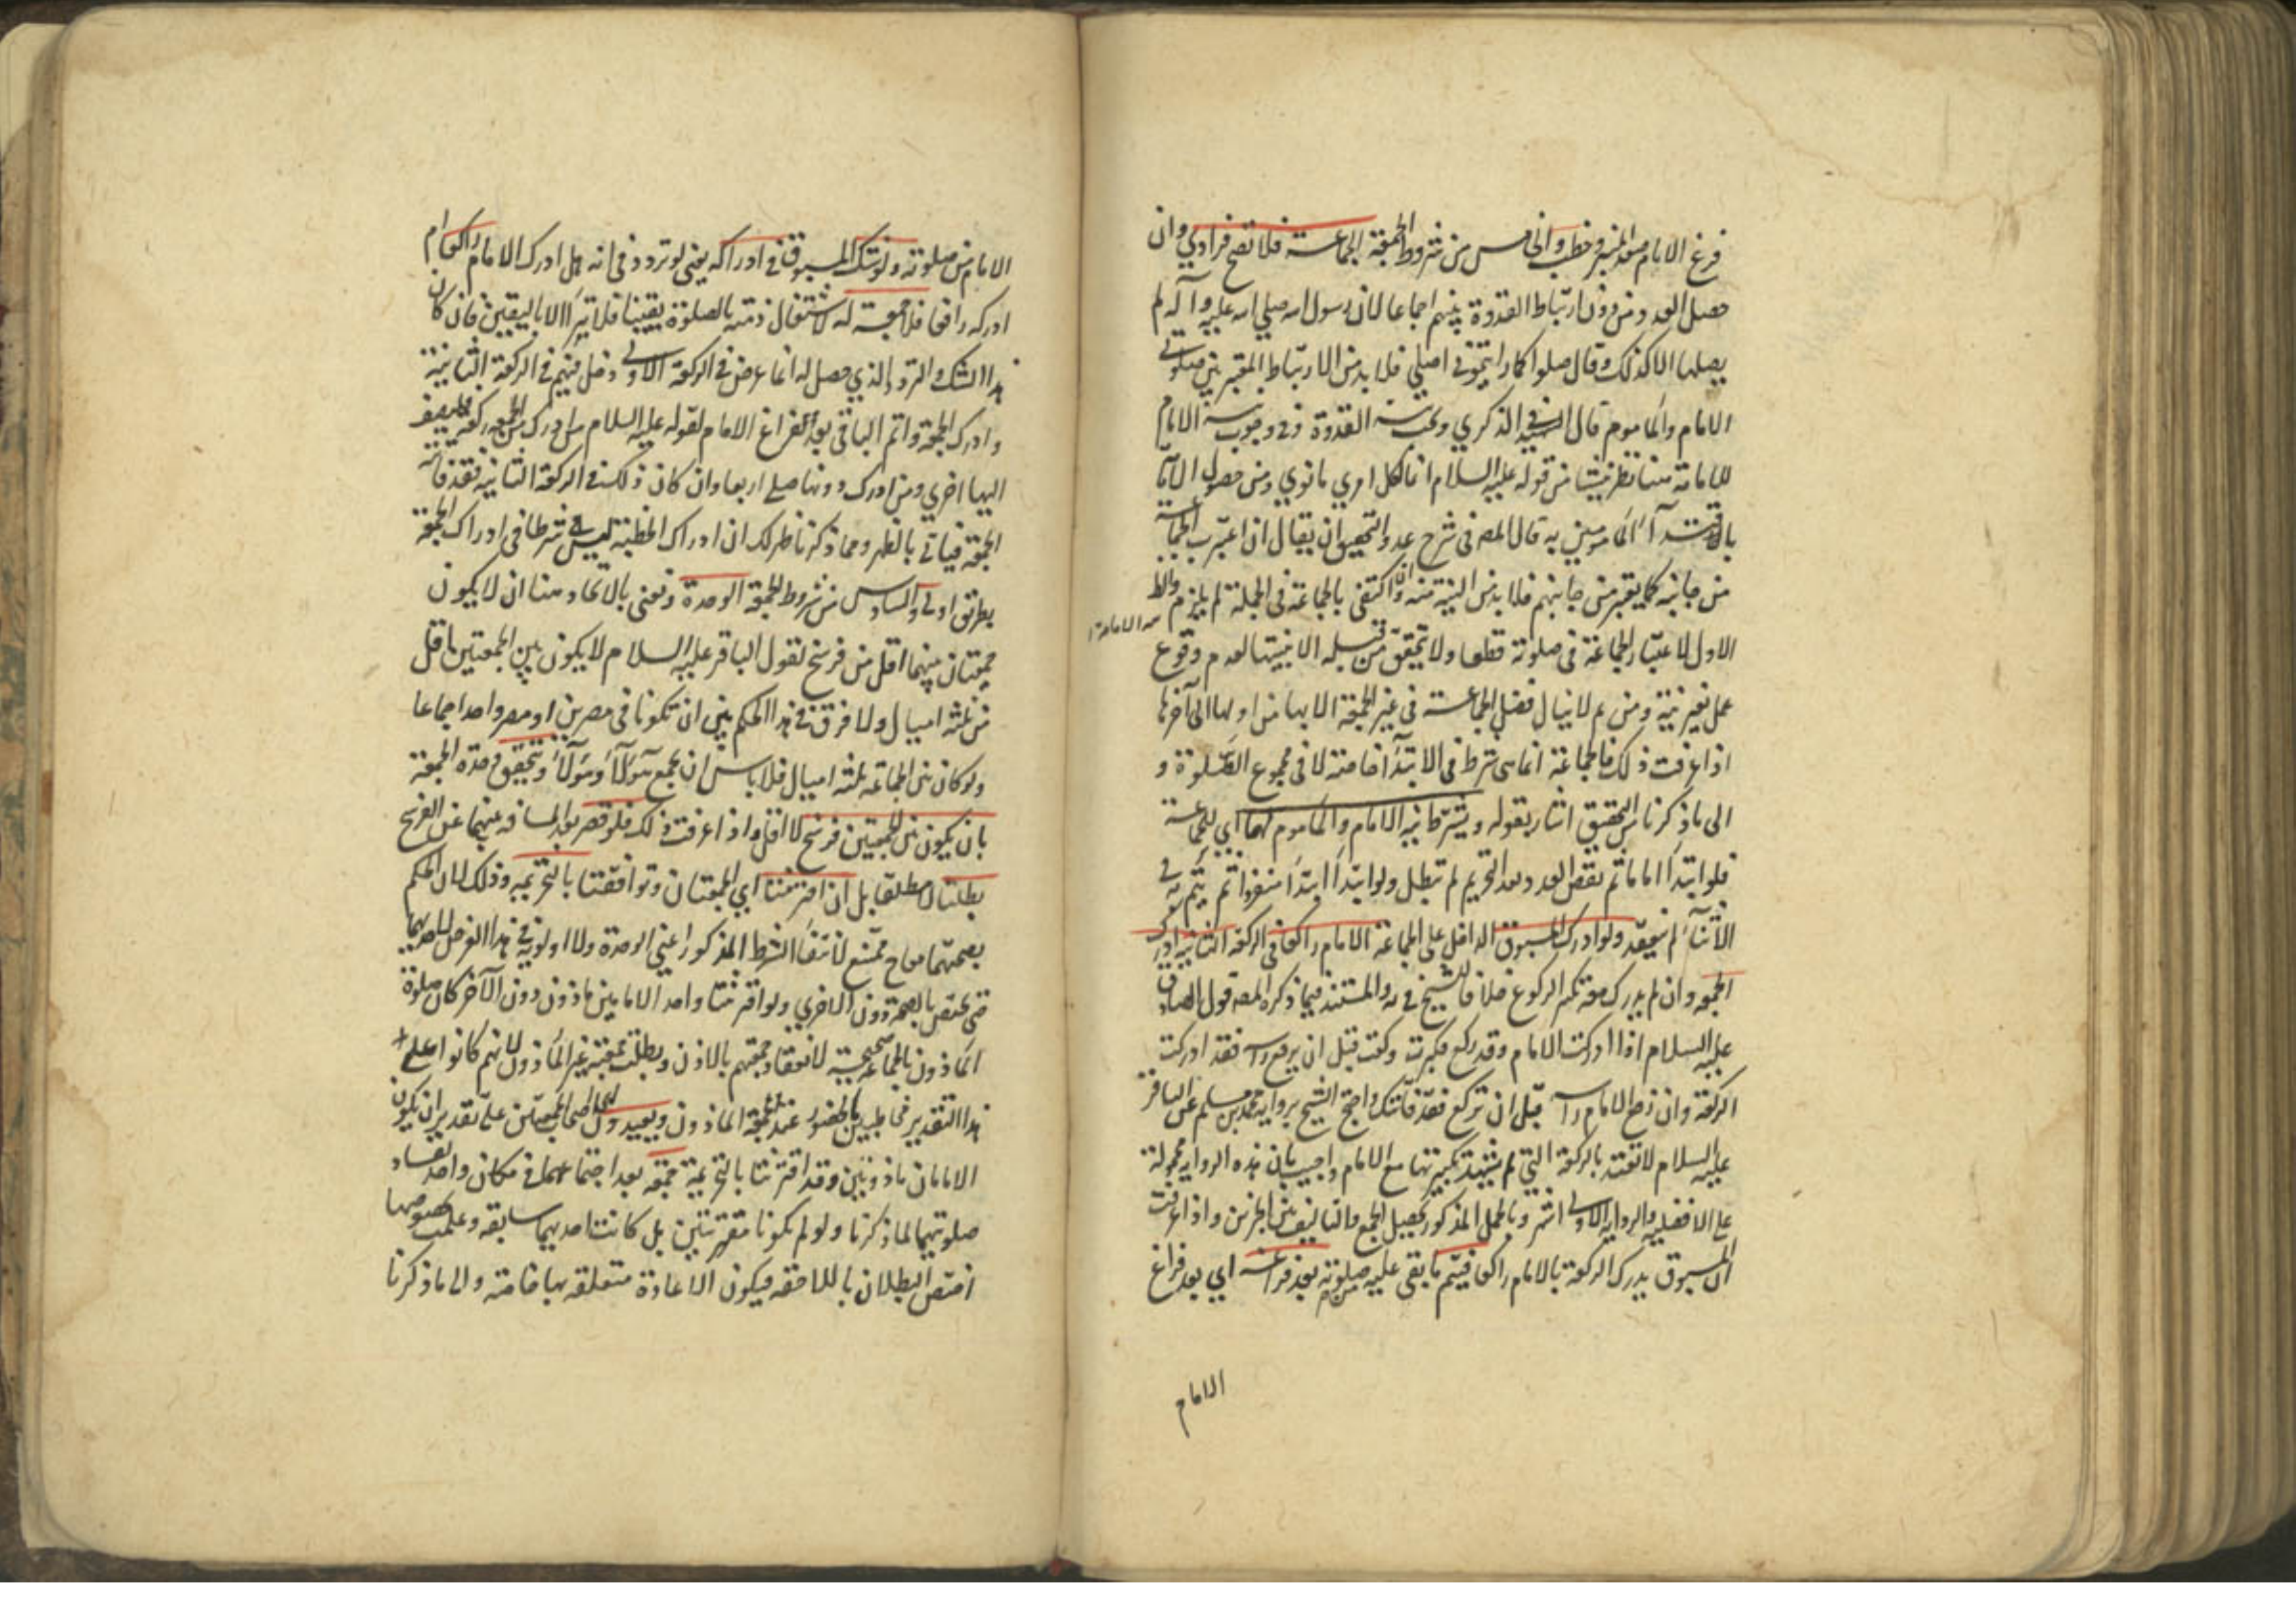 فرغ الامام صعد المنبر وخطب والخامس من شروط الجمعة الجماعة فلا تصح فرادي وان
حصل العدد من دون ارتباط القدوة بينهم اجماعا لان رسول الله صلي الله عليه وآله لم
يصلها الا كذلك وقال صلوا كما رايتموني اصلي فلا بد من الارتباط المعتبر بين صلوتي
الامام والماموم قال في الذكري ويجب نية القدوة وفي وجوب نية الامام
للامامة هنا نظر ينشا من قوله عليه السلام انما لكل امري ما نوي ومن حصول الامامة
باقتدآء المامومين به قال المصـ في شرح عد والتحقيق ان يقال ان اعتبرت الجماعة
من جانبه كما يعتبر من جانبهم فلا بد من النية منه وان اكتفي بالجماعة في الجملة لم يلزم منه الامامة والظ
الاول لاعتبار الجماعة في صلوته قطعا ولا تتحقق من قبله الا بنيتها لعدم وقوع
عمل بغير نية ومن ثم لا ينال فضل الجماعة في غير الجمعة الا بها من اولها الي آخرها
اذا عرفت ذلك فالجماعة انما هي شرط في الابتدآء خاصة لا في مجموع الصلوة و
الي ما ذكرنا من التحقيق اشار بقوله ويشترط نية الامام والماموم لها اي للجماعة
فلو ابتدا اماما ثم نقص العدد بعد التحريم لم تبطل ولو ابتدا ابتدآء منفردا ثم يتم به في
الاثنآء لم تنعقد ولو ادرك المسبوق الداخل علي الجماعة الامام راكعا في الركعة الثانية ادرك
الجمعه وان لم يدرك معه تكبير الركوع خلافا للشيخ في يه والمستند فيما ذكره المصـ قول الصادق
عليه السلام اذا ادركت الامام وقد ركع فكبرت وركعت قبل ان يرفع راسه فقد ادركت
الركعة وان رفع الامام راسه قبل ان تركع فقد فاتتك واحتج الشيخ برواية محمد بن مسلم عن الباقر
عليه السلام لا تعتد بالركعة التي لم تشهد تكبيرتها مع الامام واجيب بان هذه الرواية محمولة
علي الافضلية والرواية الاولي اشهر وبالحمل المذكور يحصل الجمع والتاليف بين الخبرين واذا عرفت
ان المسبوق يدرك الركعة بالامام راكعا فيتم ما بقي عليه من صلوته بعد فراغه اي بعد فراغ
الامام
الامام من صلوته ولو شك المسبوق في ادراكه يعني لو تردد في انه هل ادرك الامام راكعا ام
ادركه رافعا فلا جمعة له لاشتغال ذمته بالصلوة يقينا فلا تبرا الا باليقين فان كان
هذا الشك والتردد الذي حصل له انما عرض في الركعة الاولي دخل معهم في الركعة الثانية
وادرك الجمعة واتم الباقي بعد فراغ الامام لقوله عليه السلام من ادرك من الجمعة ركعة فليضف
اليها اخري ومن ادرك دونها صلي اربعا وان كان ذلك في الركعة الثانية فقد فاتته
الجمعة فياتي بالظهر ومما ذكرنا ظهر لك ان ادراك الخطبة ليس شرطا في ادراك الجمعة
بطريق اولي والسادس من شروط الجمعة الوحدة ونعني بالاتحاد هنا ان لا يكون
جمعتان بينهما اقل من فرسخ لقول الباقر عليه السلام لا يكون بين الجمعتين اقل
من ثلثة اميال ولا فرق في هذا الحكم بين ان تكونا في مصرين او مصر واحد اجماعا
ولو كان بين الجماعة ثلثه اميال فلا باس ان يجمع هؤلآء وهؤلآء ويتحقق وحدة الجمعة
بان يكون بين الجمعتين فرسخ لا اقل واذا عرفت ذلك فلو قصر بعد المسافه عنهما عن الفرسخ
بطلتا لا مطلقا بل ان اقترنتا اي الجمعتان وتوافقتا بالتحريمة وذلك لان الحكم
بصحتهما معا ح ممتنع لانتفآء الشرط المذكور اعني الوحدة ولا اولوية في هذا الفرض لاحديهما
حتي تختص بالصحة دون الاخري ولو اقترنتا واحد الامامين ماذون دون الآخر كان صلوة
الماذون بالجماعة صحيحة لانعقاد جمعتهم بالاذن وبطلت جمعة غير الماذون لانهم كانوا علي
هذا التقدير مخاطبين بالحضور عند جمعة الماذون ويعيد كل اصحاب الجمعتين علي تقدير ان يكون
الامامان ماذونين وقد اقترنتا بالتحريمة جمعة بعد اجتماعهما في مكان واحد لفساد
صلوتيهما لما ذكرنا ولو لم تكونا مقترنتين بل كانت احديهما سابقه وعلمت بخصوصها
اختص البطلان باللاحقه فيكون الاعادة متعلقه بها خاصة والي ما ذكرنا